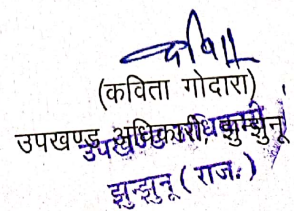 कविता
(कविता गोदारा)
उपखण्ड अधिकारी, झुन्झुनू
उपखण्ड अधिकारी
झुन्झुनू ( राज. )